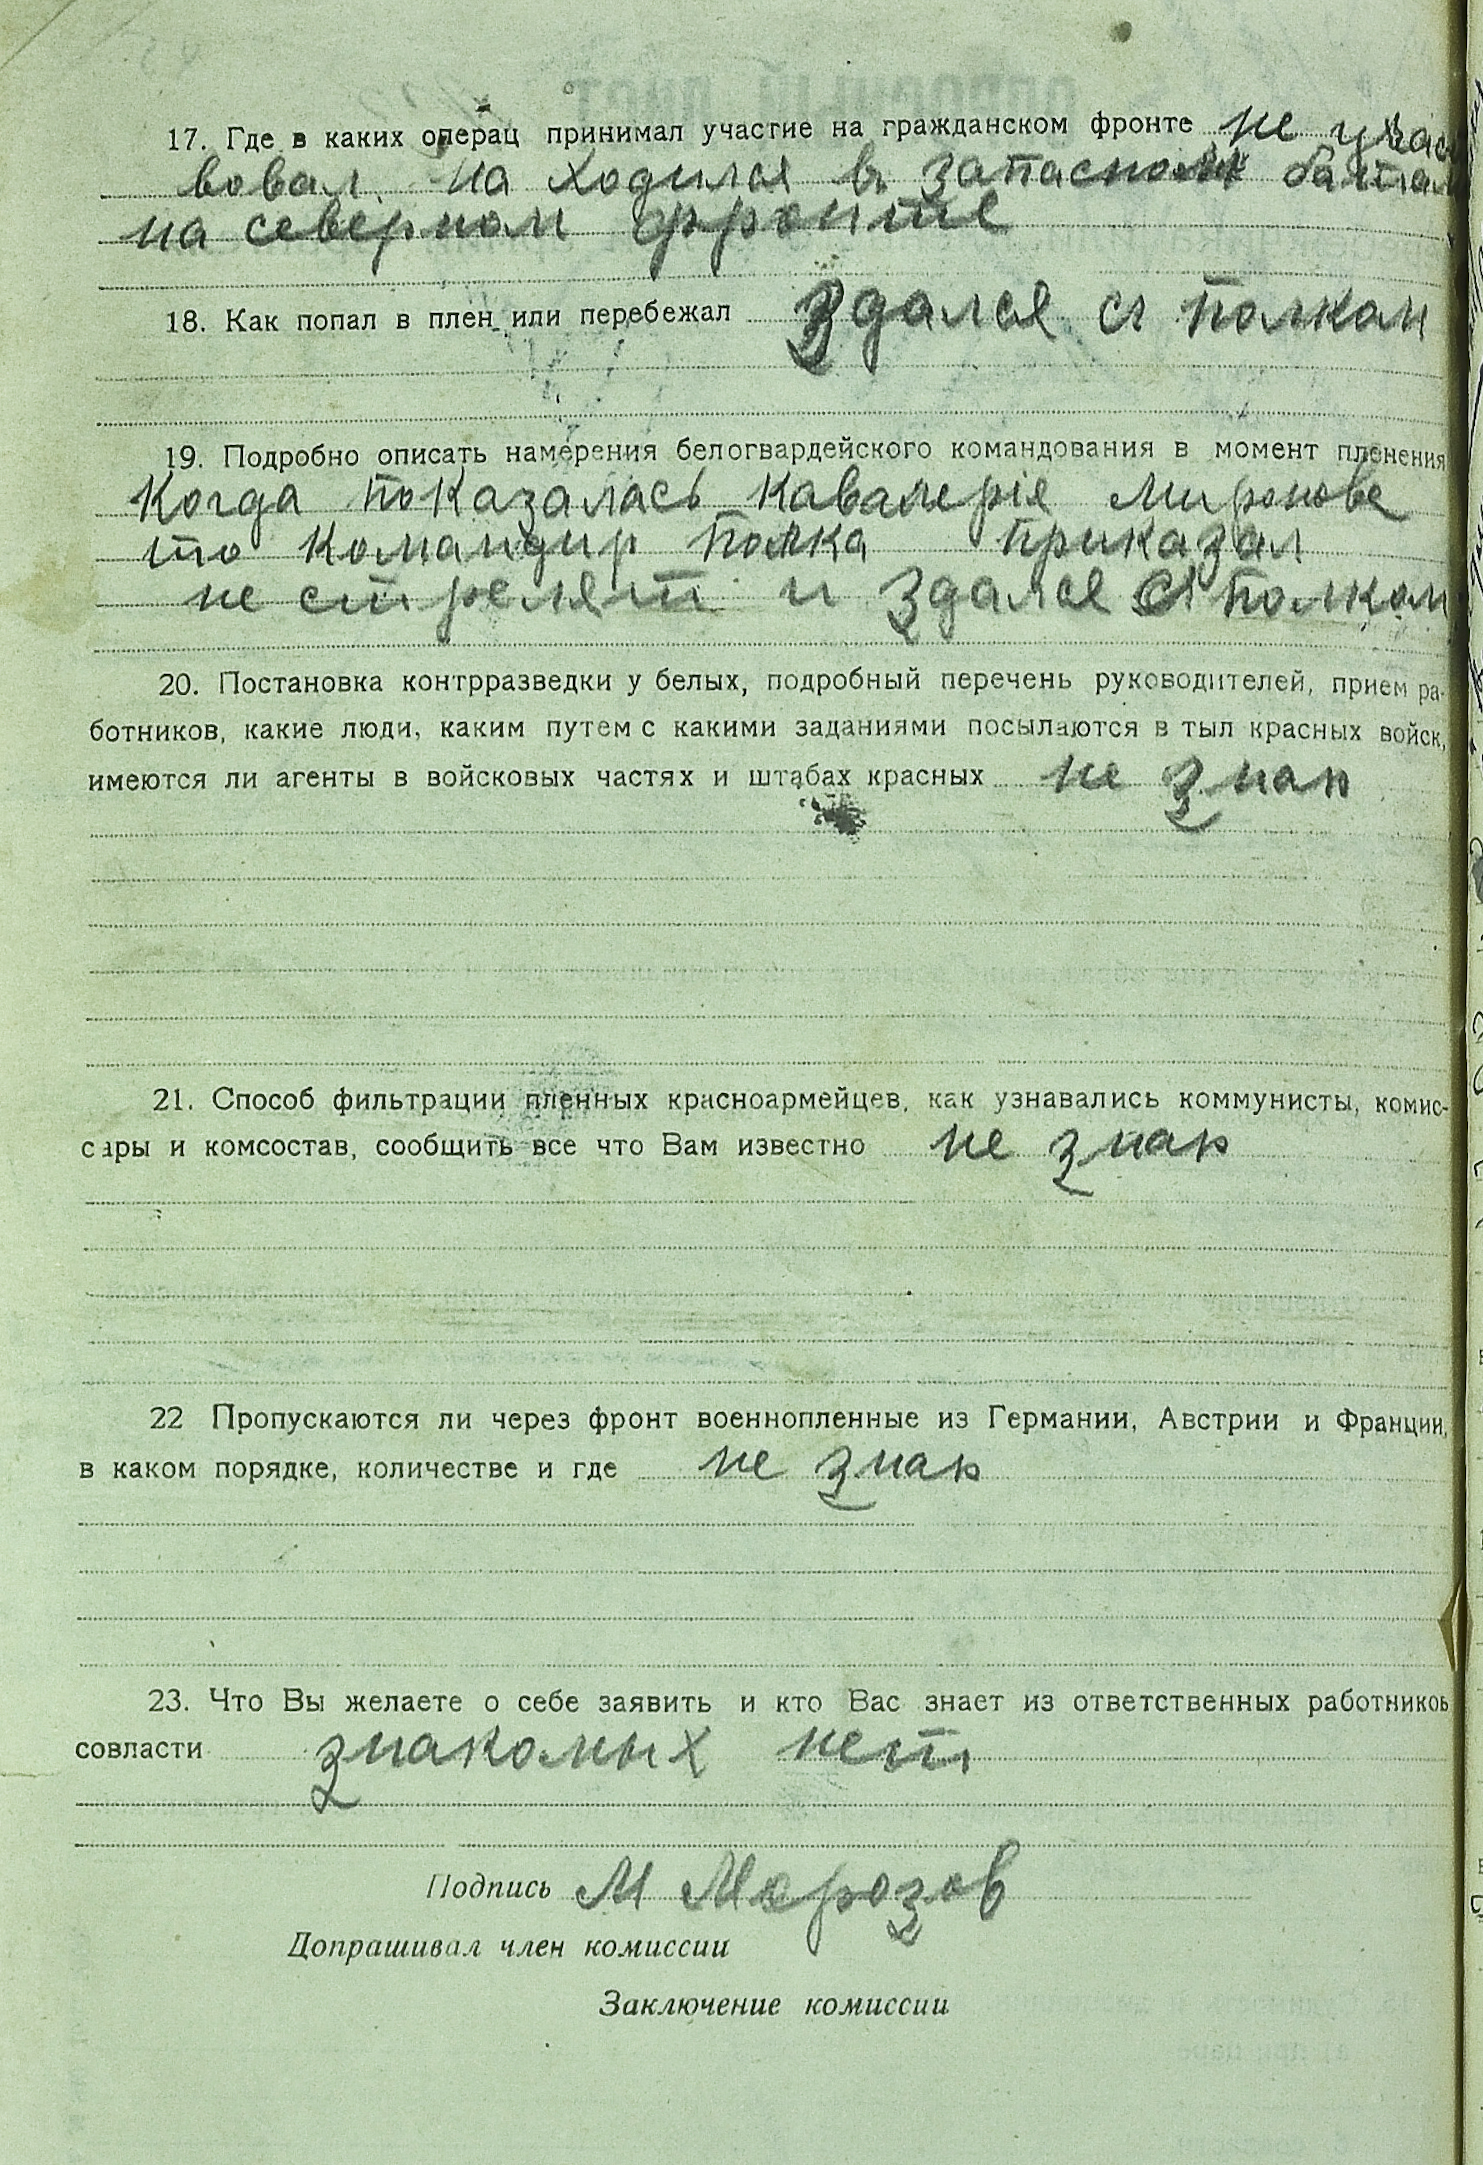 17. Где в каких операц принимал участие на гражданском фронте не учас
вовал на ходился въ запасном батал
на северном фронте
18. Как попал в плен или перебежал здался съ полком
19. Подробно описать намерения белогвардейского командования в момент пленения
Когда показалась кавалерія Миронова
то командир полка приказал
не стрелят и здался съ полком
20. Постановка контрразведки у белых, подробный перечень руководителей, прием ра-
ботников, какие люди, каким путем с какими заданиями посылаются в тыл красных войск,
имеются ли агенты в войсковых частях и штабах красных не знаю
21. Способ фильтрации пленных красноармейцев, как узнавались коммунисты, комис-
сары и комсостав, сообщить все что Вам известно не знаю
22 Пропускаются ли через фронт военнопленные из Германии, Австрии и Франции,
в каком порядке, количестве и где не знаю
23. Что Вы желаете о себе заявить и кто Вас знает из ответственных работников
совласти знакомых нет
Подпись М Морозов
Допрашивал член комиссии
Заключение комиссии